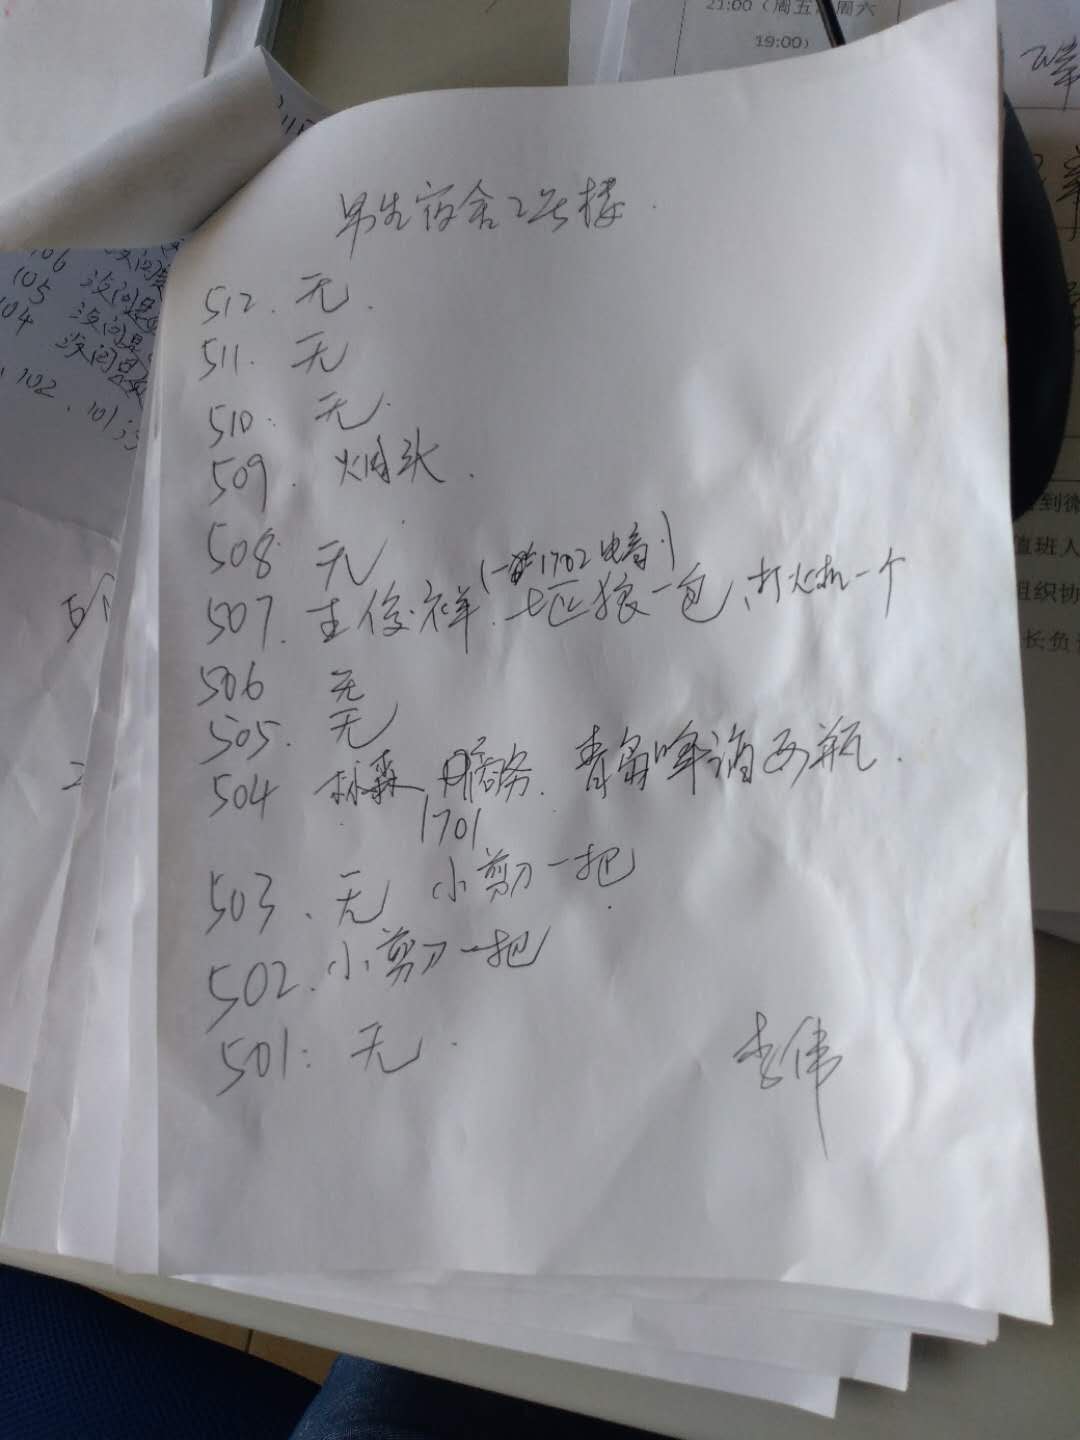 21:00（周五、周六
19:00）
男生宿舍2号楼.
512. 无.
511. 无
510. 无.
509. 烟头.
508. 无
(1702电商)
507. 王俊祥. 七匹狼一包、打火机一个
506 无
505. 无
504 林森 商务. 青岛啤酒两瓶.
1701
503、无 小剪刀一把
502. 小剪刀一把
501: 无.
李伟
106
105 没问题
104 没问题
没问题
102、101
到微
值班人
组织协
长负